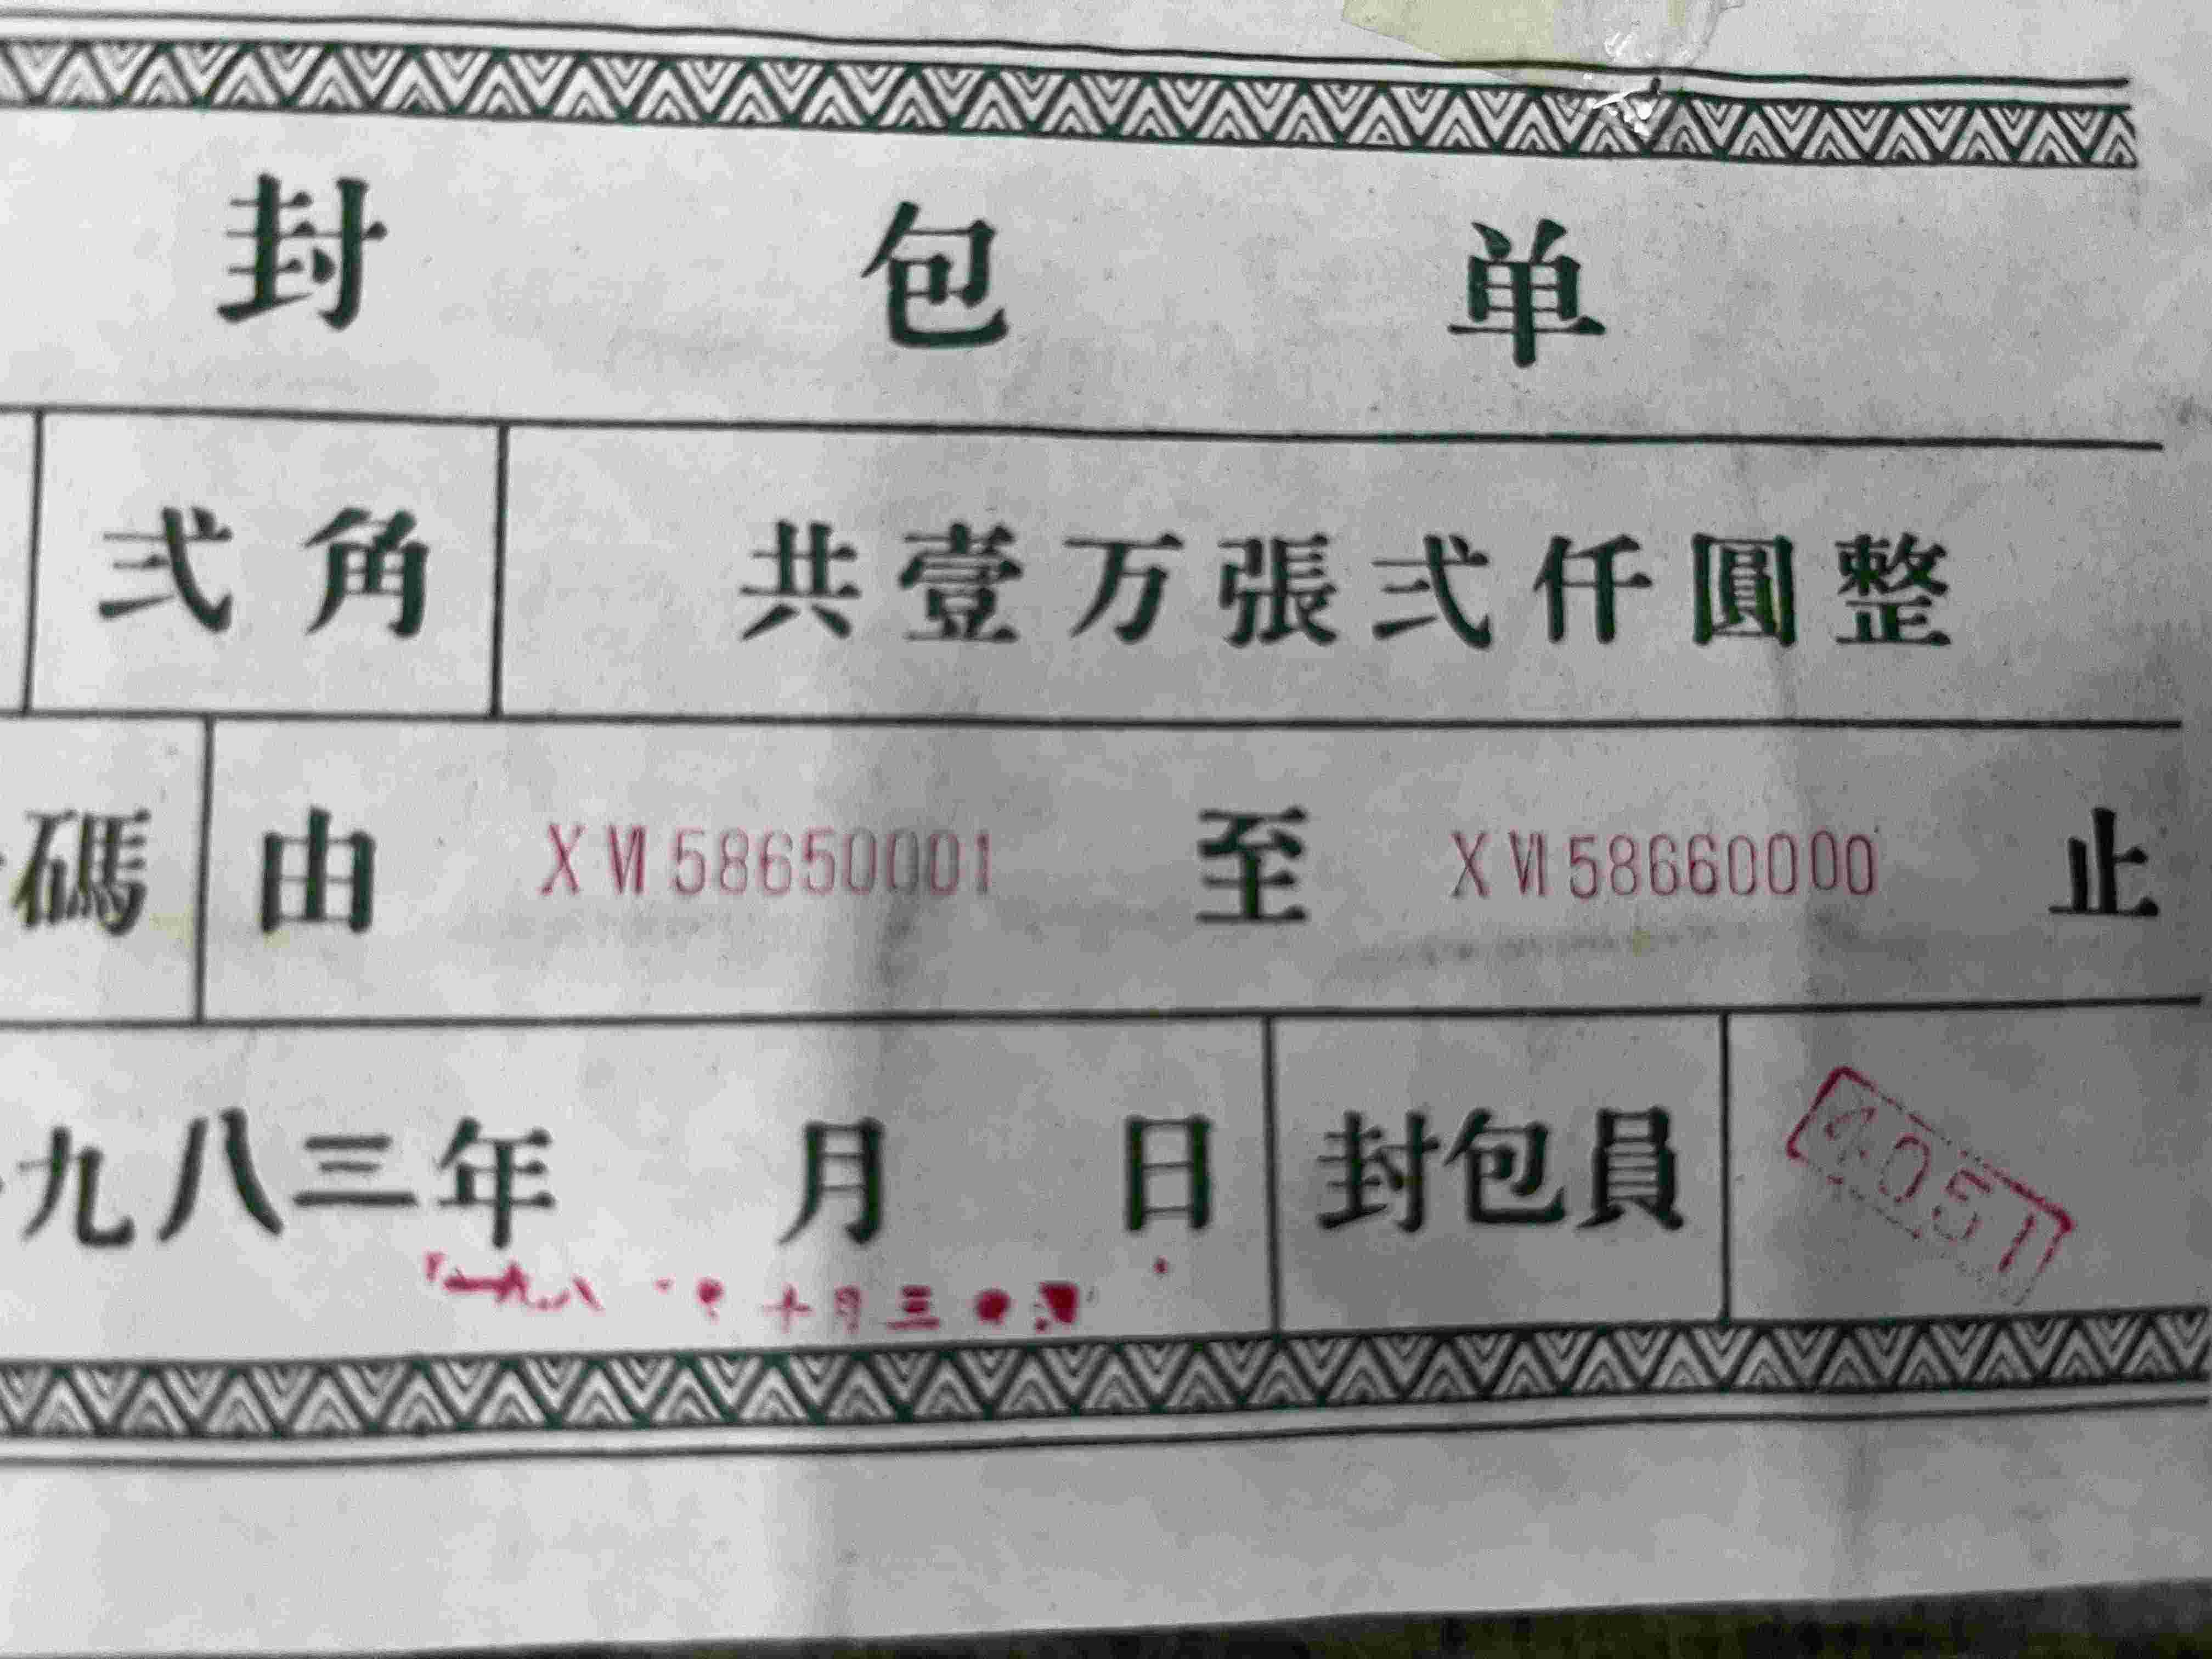 封包单
弍角 共壹万張弍仟圓整
碼 由 X VI 58650001 至 X VI 58660000 止
九八三年 月 日 封包員 4051
一九八 十月三